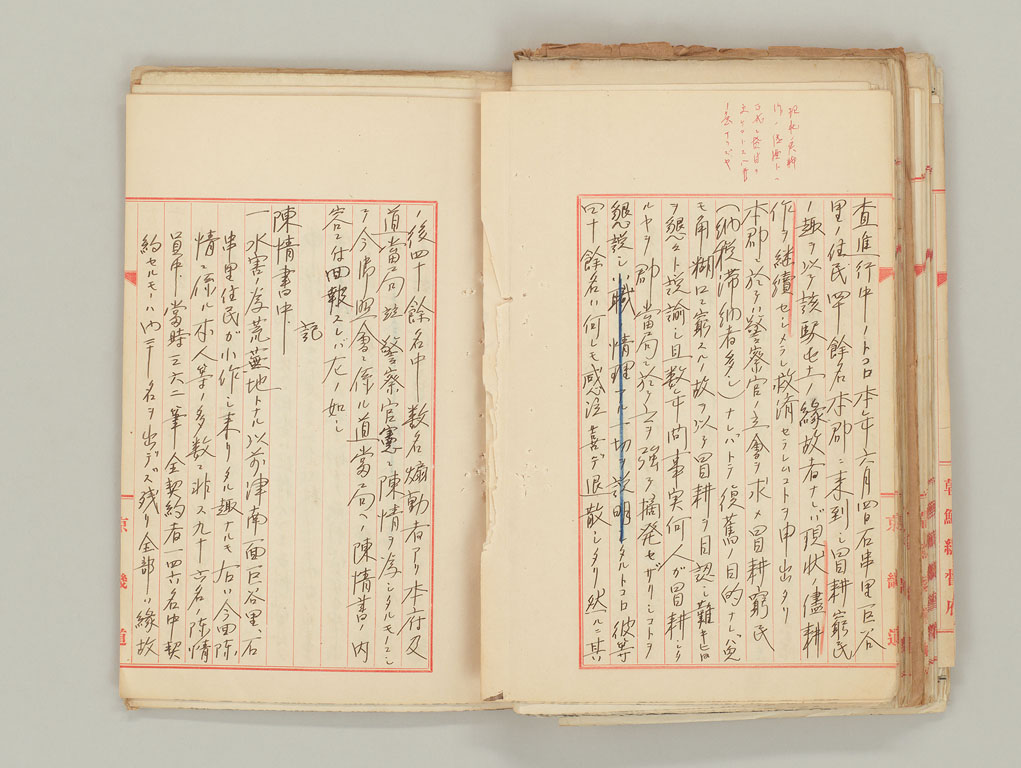 査進行中ノトコロ本年六月四日石串里巨谷
里ノ住民四十余名本郡ニ来到シ冒耕窮民
ノ趣ヲ以テ該駅屯土ノ縁故者ナレバ現状ノ儘耕
作ヲ継續セシメラレ救済セラレムコトヲ申出タリ
本郡ニ於テハ警察官ノ立會ヲ求メ冒耕窮民
(納税滞納者多シ)ナレバトテ復舊ノ目的ナレバ
モ角糊口ニ窮スルノ故ヲ以テ冒耕ヲ目認シ難キ旨
ヲ懇々ト説諭シ且数年間事実何人ガ冒耕シタ
ルヤヲ郡當局ニ於テハ之ヲ強テ摘発セザリシコトヲ
懇説シ職情理一切ヲ説明シタルトコロ彼等
四十餘名ハ何レモ感泣喜ンデ退散シタリタル然ルニ其
ノ後四十餘名中数名煽動者アリ本府及
道當局並警察官憲ニ陳情ヲ為シタルモノニシ
テ今滞照會ニ係ル道當局ヘノ陳情書ノ内
容ニ付回報スレバ左ノ如シ
記
陳情書中
一 水害ノ為荒蕪地トナル以前津南面巨谷里、石
串里住民ガ小作シ来リタル趣ナルモ右ハ今回陳
情ニ係ル本人等ノ多数ニ非ス九十六名ノ陳情
員中當時三六二筆全契約者一四六名中契
約セルモノハ内二十一名ヲ出デズ残リ全部ハ縁故
京畿道
京畿道
朝鮮総督府